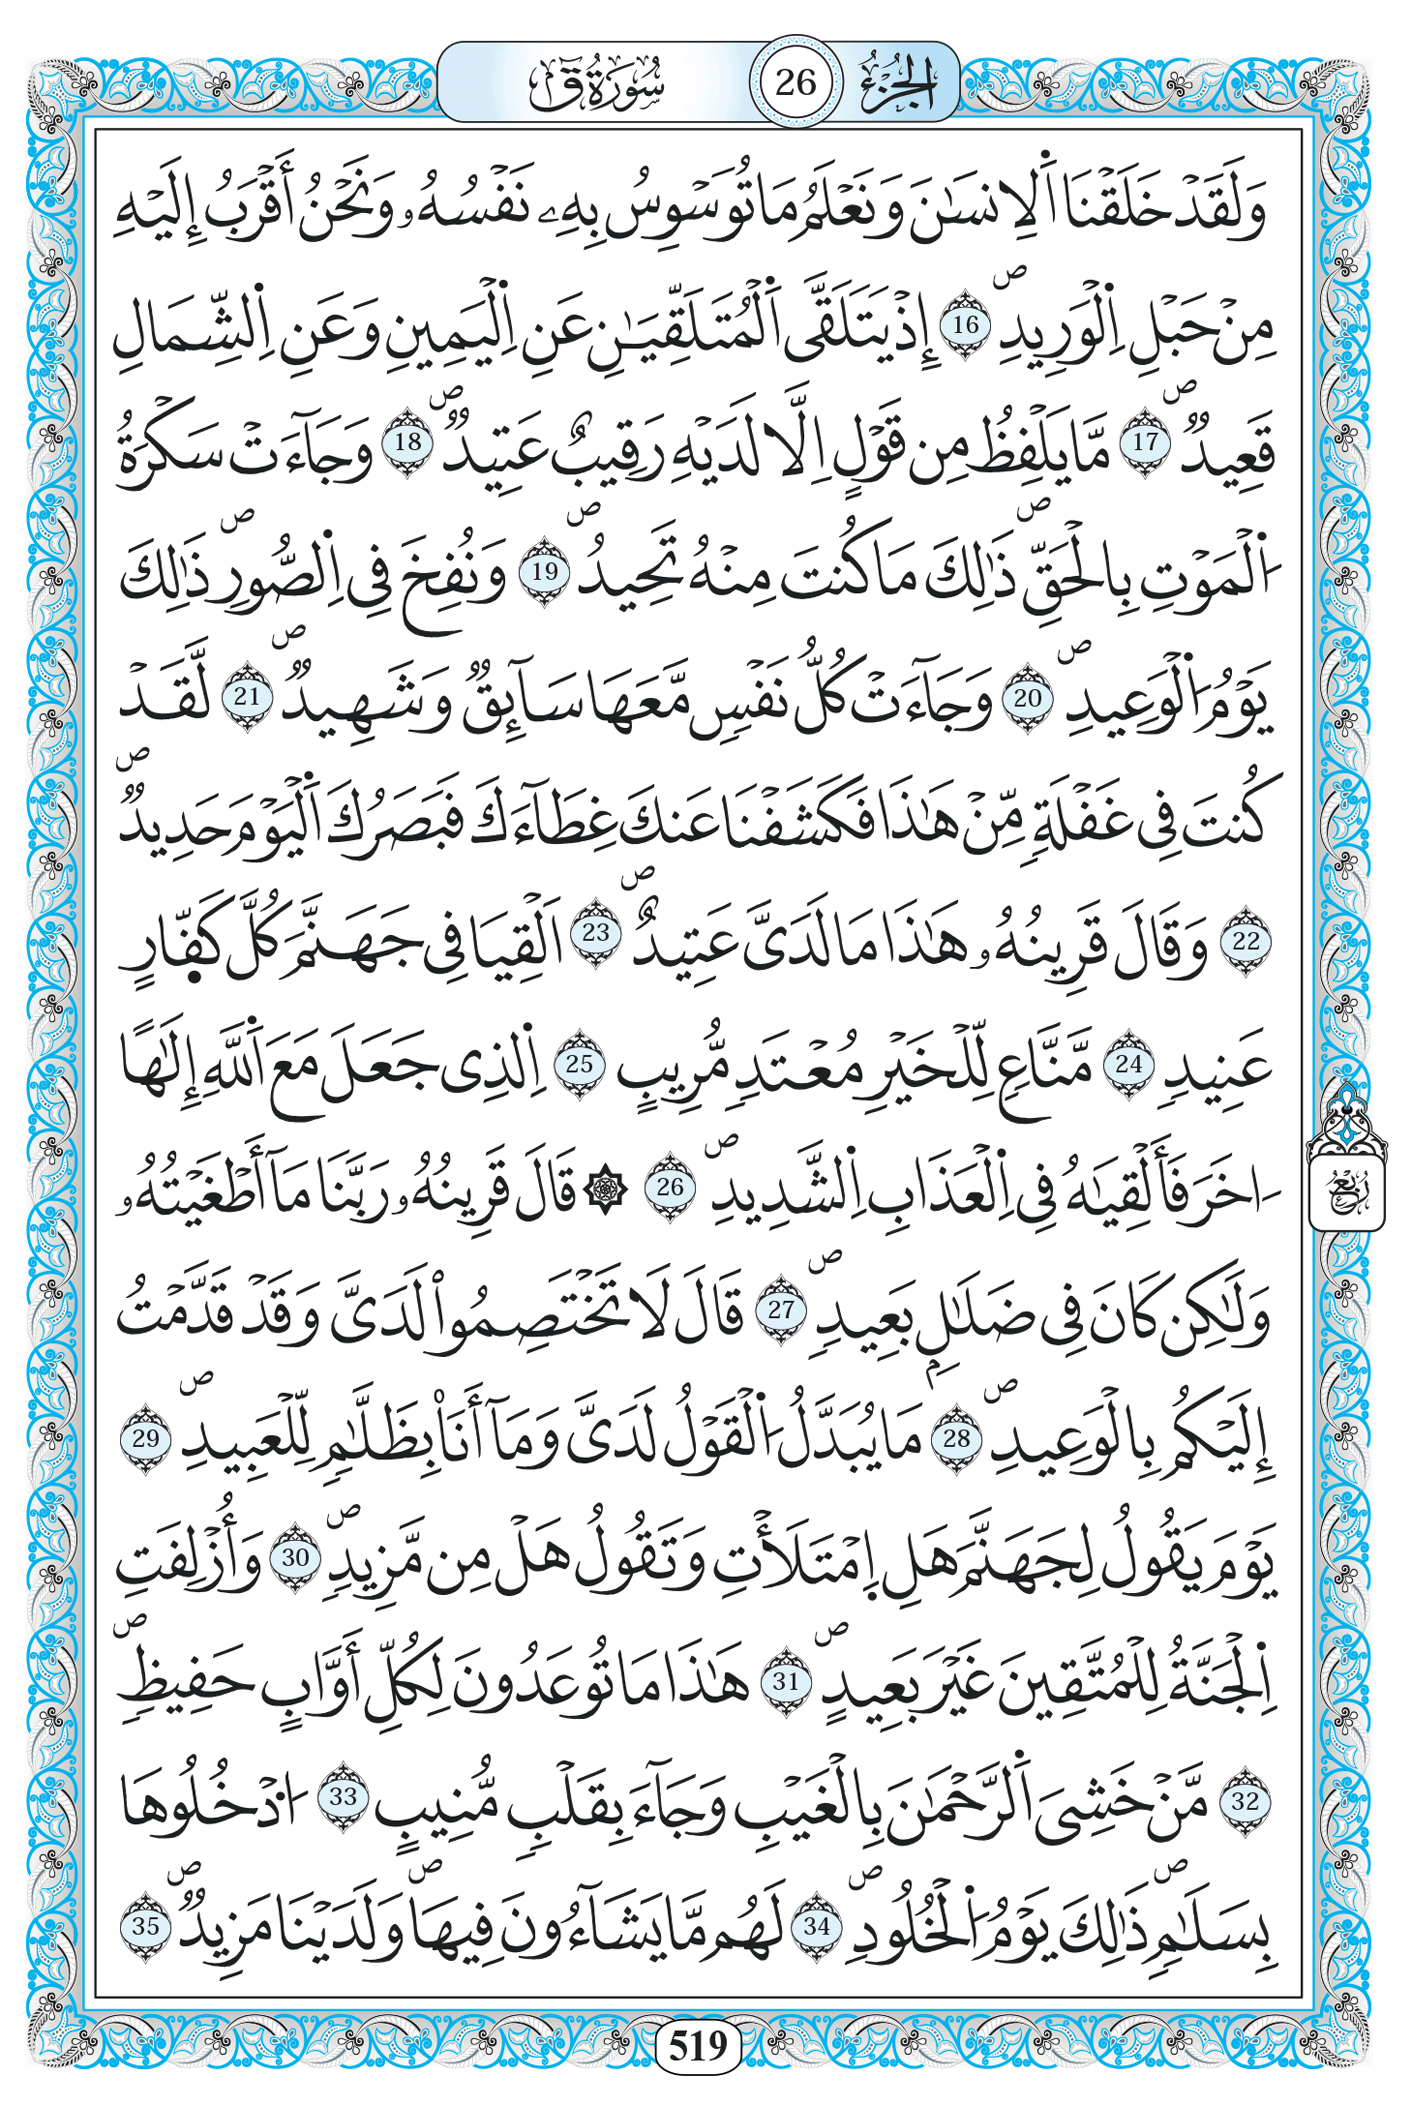 الجزء 26 سورة ق
وَلَقَدْ خَلَقْنَا اَ۬لِانسَٰنَ وَنَعْلَمُ مَا تُوَسْوِسُ بِهِۦ نَفْسُهُۥ وَنَحْنُ أَقْرَبُ إِلَيْهِ
مِنْ حَبْلِ اِ۬لْوَرِيدِۖ 16 إِذْ يَتَلَقَّى اَ۬لْمُتَلَقِّيَـٰنِ عَنِ اِ۬لْيَمِينِ وَعَنِ اِ۬لشِّمَالِ
قَعِيدٞۖ 17 مَّا يَلْفِظُ مِن قَوْلٍ اِلَّا لَدَيْهِ رَقِيبٌ عَتِيدٞۖ 18 وَجَآءَتْ سَكْرَةُ
اُ۬لْمَوْتِ بِالْحَقِّۖ ذَٰلِكَ مَا كُنتَ مِنْهُ تَحِيدُۖ 19 وَنُفِخَ فِى اِ۬لصُّورِۖ ذَٰلِكَ
يَوْمُ اُ۬لْوَعِيدِۖ 20 وَجَآءَتْ كُلُّ نَفْسٖ مَّعَهَا سَآئِقٞ وَشَهِيدٞۖ 21 لَّقَدْ
كُنتَ فِى غَفْلَةٖ مِّنْ هَٰذَا فَكَشَفْنَا عَنكَ غِطَآءَكَ فَبَصَرُكَ اَ۬لْيَوْمَ حَدِيدٞۖ
22 وَقَالَ قَرِينُهُۥ هَٰذَا مَا لَدَىَّ عَتِيدٌۖ 23 اَلْقِيَا فِى جَهَنَّمَ كُلَّ كَفّ۪ارٍ
عَنِيدٖ 24 مَّنَّاعٖ لِّلْخَيْرِ مُعْتَدٖ مُّرِيبٍ 25 اِ۬لذِى جَعَلَ مَعَ اَ۬للَّهِ إِلَٰهًا
اٰخَرَ فَأَلْقِيَٰهُ فِى اِ۬لْعَذَابِ اِ۬لشَّدِيدِۖ 26 ۞ قَالَ قَرِينُهُۥ رَبَّنَا مَآ أَطْغَيْتُهُۥ
وَلَٰكِن كَانَ فِى ضَلَٰلِۢ بَعِيدٖۖ 27 قَالَ لَا تَخْتَصِمُوا۟ لَدَىَّ وَقَدْ قَدَّمْتُ
إِلَيْكُم بِالْوَعِيدِۖ 28 مَا يُبَدَّلُ اُ۬لْقَوْلُ لَدَىَّ وَمَآ أَنَا۠ بِظَلَّٰمٖ لِّلْعَبِيدِۖ 29
يَوْمَ يَقُولُ لِجَهَنَّمَ هَلِ اِ۪مْتَلَأْتِ وَتَقُولُ هَلْ مِن مَّزِيدٖۖ 30 وَأُزْلِفَتِ
اِ۬لْجَنَّةُ لِلْمُتَّقِينَ غَيْرَ بَعِيدٍۖ 31 هَٰذَا مَا تُوعَدُونَ لِكُلِّ أَوَّابٍ حَفِيظٖۖ
32 مَّنْ خَشِىَ اَ۬لرَّحْمَٰنَ بِالْغَيْبِ وَجَآءَ بِقَلْبٖ مُّنِيبٍ 33 اُ۟دْخُلُوهَا
بِسَلَٰمٖۖ ذَٰلِكَ يَوْمُ اُ۬لْخُلُودِۖ 34 لَهُم مَّا يَشَآءُونَ فِيهَاۖ وَلَدَيْنَا مَزِيدٞۖ 35
ربع
519